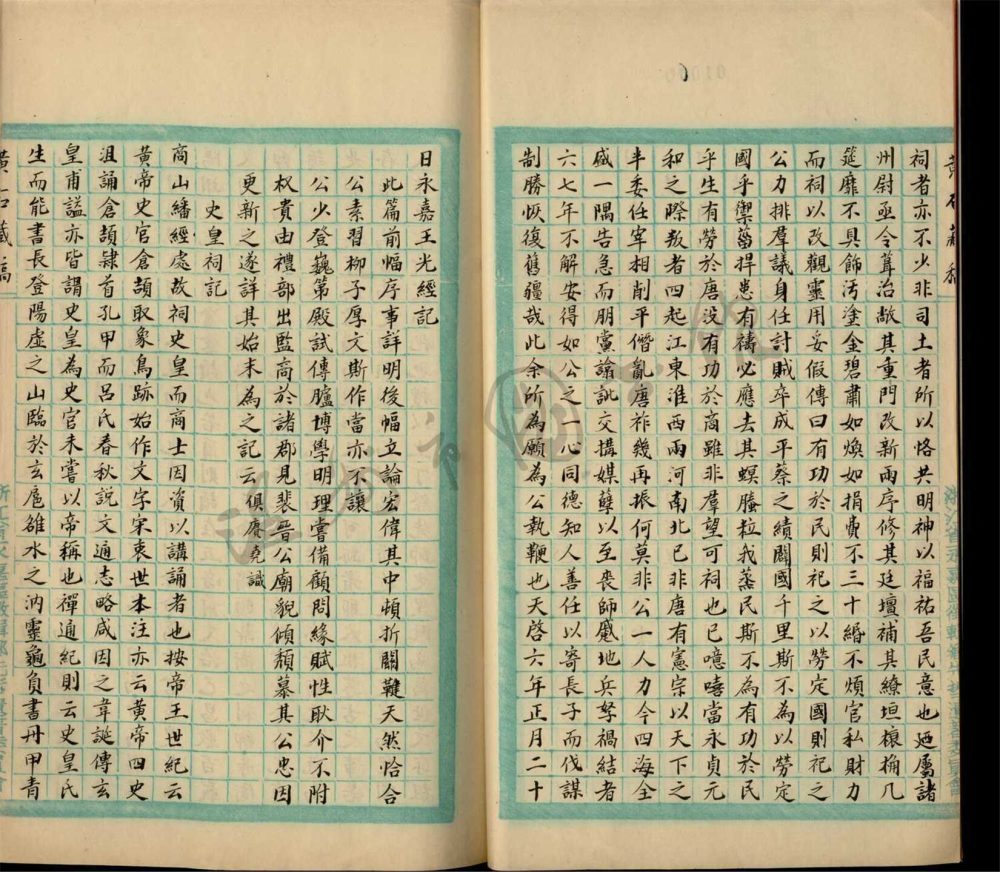 黃石藏稿
祠者亦不少非司土者所以恪共明神以福祐吾民意也廼屬諸
州尉亟令葺治敞其重門改新兩序修其廷壇補其繚垣榱桷几
筵靡不具飾污塗金碧肅如煥如捐費不三十緡不煩官私財力
而祠以改觀靈用妥假傳曰有功於民則祀之以勞定國則祀之
公力排羣議身任討賊卒成平蔡之績闢國千里斯不為以勞定
國乎禦菑捍患有禱必應去其螟螣粒我蒸民斯不為有功於民
乎生有勞於唐沒有功於商雖非羣望可祠也已噫嘻當永貞元
和之際叛者四起江東淮西兩河南北已非唐有憲宗以天下之
半委任宰相削平僭亂唐祚幾再振何莫非公一人力今四海全
盛一隅告急而朋黨論訿交搆媒孽以至喪師蹙地兵孥禍結者
六七年不解安得如公之一心同德知人善任以寄長子而伐謀
制勝恢復舊疆哉此余所為願為公執鞭也天啓六年正月二十
日永嘉王光經記
此篇前幅序事詳明後幅立論宏偉其中頓折關鍵天然恰合
公素習柳子厚文斯作當亦不讓
公少登巍第殿試傳臚博學明理嘗備顧問緣賦性耿介不附
权貴由禮部出監商於諸郡見裴晉公廟貌傾頹慕其公忠因
更新之遂詳其始末為之記云俱賡堯識
史皇祠記
商山繙經處故祠史皇而商士因資以講誦者也按帝王世紀云
黃帝史官倉頡取象鳥跡始作文字宋衷世本注亦云黃帝四史
沮誦倉頡隸首孔甲而呂氏春秋說文通志略咸因之韋誕傳玄
皇甫謐亦皆謂史皇為史官未嘗以帝稱也禪通紀則云史皇氏
生而能書長登陽虛之山臨於玄扈雒水之汭靈龜負書丹甲青
黃石藏稿